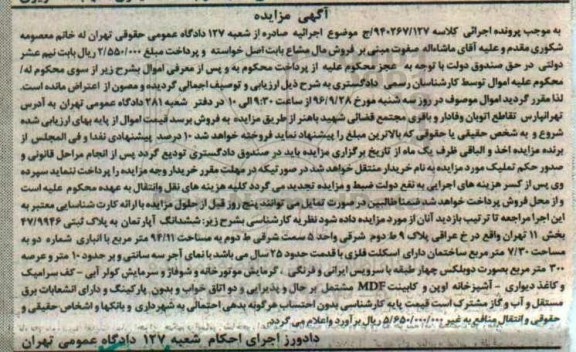 آگهی مزایده
به موجب پرونده اجرائی کلاسه ۹۴۰۲۶۷/۱۲۷/ج موضوع اجرائیه صادره از شعبه ۱۲۷ دادگاه عمومی حقوقی تهران له خانم معصومه
شکوری مقدم و علیه آقای ماشااله صفوت مبنی بر فروش مال مشاع بابت اصل خواسته و پرداخت مبلغ ۲/۵۵۰/۰۰۰ ریال بابت نیم عشر
دولتی در حق صندوق دولت با توجه به عجز محکوم علیه از پرداخت محکوم به و پس از معرفی اموال بشرح زیر از سوی محکوم له/
محکوم علیه اموال توسط کارشناسان رسمی دادگستری به شرح ذیل ارزیابی و توصیف اجمالی گردیده و مصون از اعتراض مانده است.
لذا مقرر گردید اموال موصوف در روز سه شنبه مورخ ۹۶/۹/۲۸ از ساعت ۹:۳۰ الی ۱۰ در دفتر شعبه ۲۸۱ دادگاه عمومی تهران به آدرس
تهرانپارس تقاطع اتوبان وفادار و باقری مجتمع قضائی شهید باهنر از طریق مزایده به فروش برسد قیمت اموال از پایه بهای ارزیابی شده
شروع و به شخص حقیقی یا حقوقی که بالاترین مبلغ را پیشنهاد نماید فروخته خواهد شد ۱۰ درصد پیشنهادی نقدا و فی المجلس از
برنده مزایده اخذ و الباقی ظرف یک ماه از تاریخ برگزاری مزایده باید در صندوق دادگستری تودیع گردد پس از انجام مراحل قانونی و
صدور حکم تملیک مورد مزایده به نام خریدار منتقل خواهد شد در صورتیکه در مهلت مقرر خریدار وجه مزایده را پرداخت ننماید سپرده
وی پس از کسر هزینه های اجرایی به نفع دولت ضبط و مزایده تجدید می گردد کلیه هزینه های نقل وانتقال به عهده محکوم علیه است
و از محل فروش پرداخت خواهد شد ضمنا طالبین در صورت تمایل می توانند پنج روز قبل از حلول مزایده با ارائه کارت شناسایی معتبر به
این اجرا مراجعه تا ترتیب بازدید آنان از مورد مزایده داده شود نظریه کارشناسی بشرح زیر: ششدانگ آپارتمان به پلاک ثبتی ۴۷/۹۹۴۶
بخش ۱۱ تهران واقع در خ عراقی پلاک ۹ ط دوم شرقی واحد ۵ سمت شرقی ط دوم به مساحت ۹۴/۱۱ متر مربع با انباری شماره دو به
مساحت ۷/۳۰ متر مربع ساختمان دارای اسکلت فلزی با قدمت حدود ۲۵ سال می باشد با نمای آجر سه سانتی و بر حدود ۱۰ متر و عرصه
۳۰۰ متر مربع بصورت دوبلکس چهار طبقه با سرویس ایرانی و فرنگی ، گرمایش موتورخانه و شوفاژ و سرمایش کولر آبی - کف سرامیک
و کاغذ دیواری - آشپزخانه اوپن و کابینت MDF مشتمل بر حال و پذیرایی و دو اتاق خواب و بدون پارکینگ و دارای انشعابات برق
مستقل و آب و گاز مشترک است قیمت پایه کارشناسی بدون احتساب هرگونه بدهی احتمالی به شهرداری و بانکها و اشخاص حقیقی و
حقوقی و انتقال منافع به غیر ۵/۶۵۰/۰۰۰/۰۰۰ ریال برآورد و اعلام می گردد.
دادورز اجرای احکام شعبه ۱۲۷ دادگاه عمومی تهران